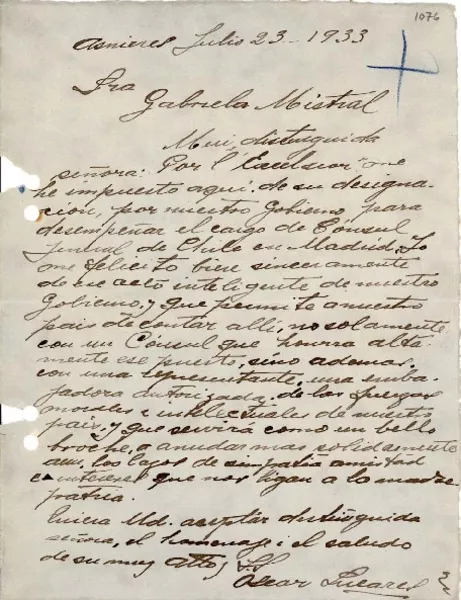 1076
Asnieres Julio 23-1933
Sra
Gabriela Mistral
Mui distinguida
señora: Por l'Excelsior me
he impuesto aqui de su designa-
cion, por nuestro Gobierno, para
desempeñar el cargo de Consul
Jeneral de Chile en Madrid. Yo
me felicito bien sinceramente
de ese acto intelijente de nuestro
Gobierno, y que permite a nuestro
pais de contar alli, no solamente
con un Cónsul que honra alta-
mente ese puesto, sino ademas,
con una representante, una emba-
jadora autorizada de las fuerzas
morales e intelectuales de nuestro
pais, y que servirá como un bello
broche, a anudar mas solidamente
aun, los lazos de simpatia amistad
e interes que nos ligan a la madre
patria.
Quiera Ud. aceptar distinguida
señora, el homenaje i el saludo
de su muy atto y S.S.
Oscar